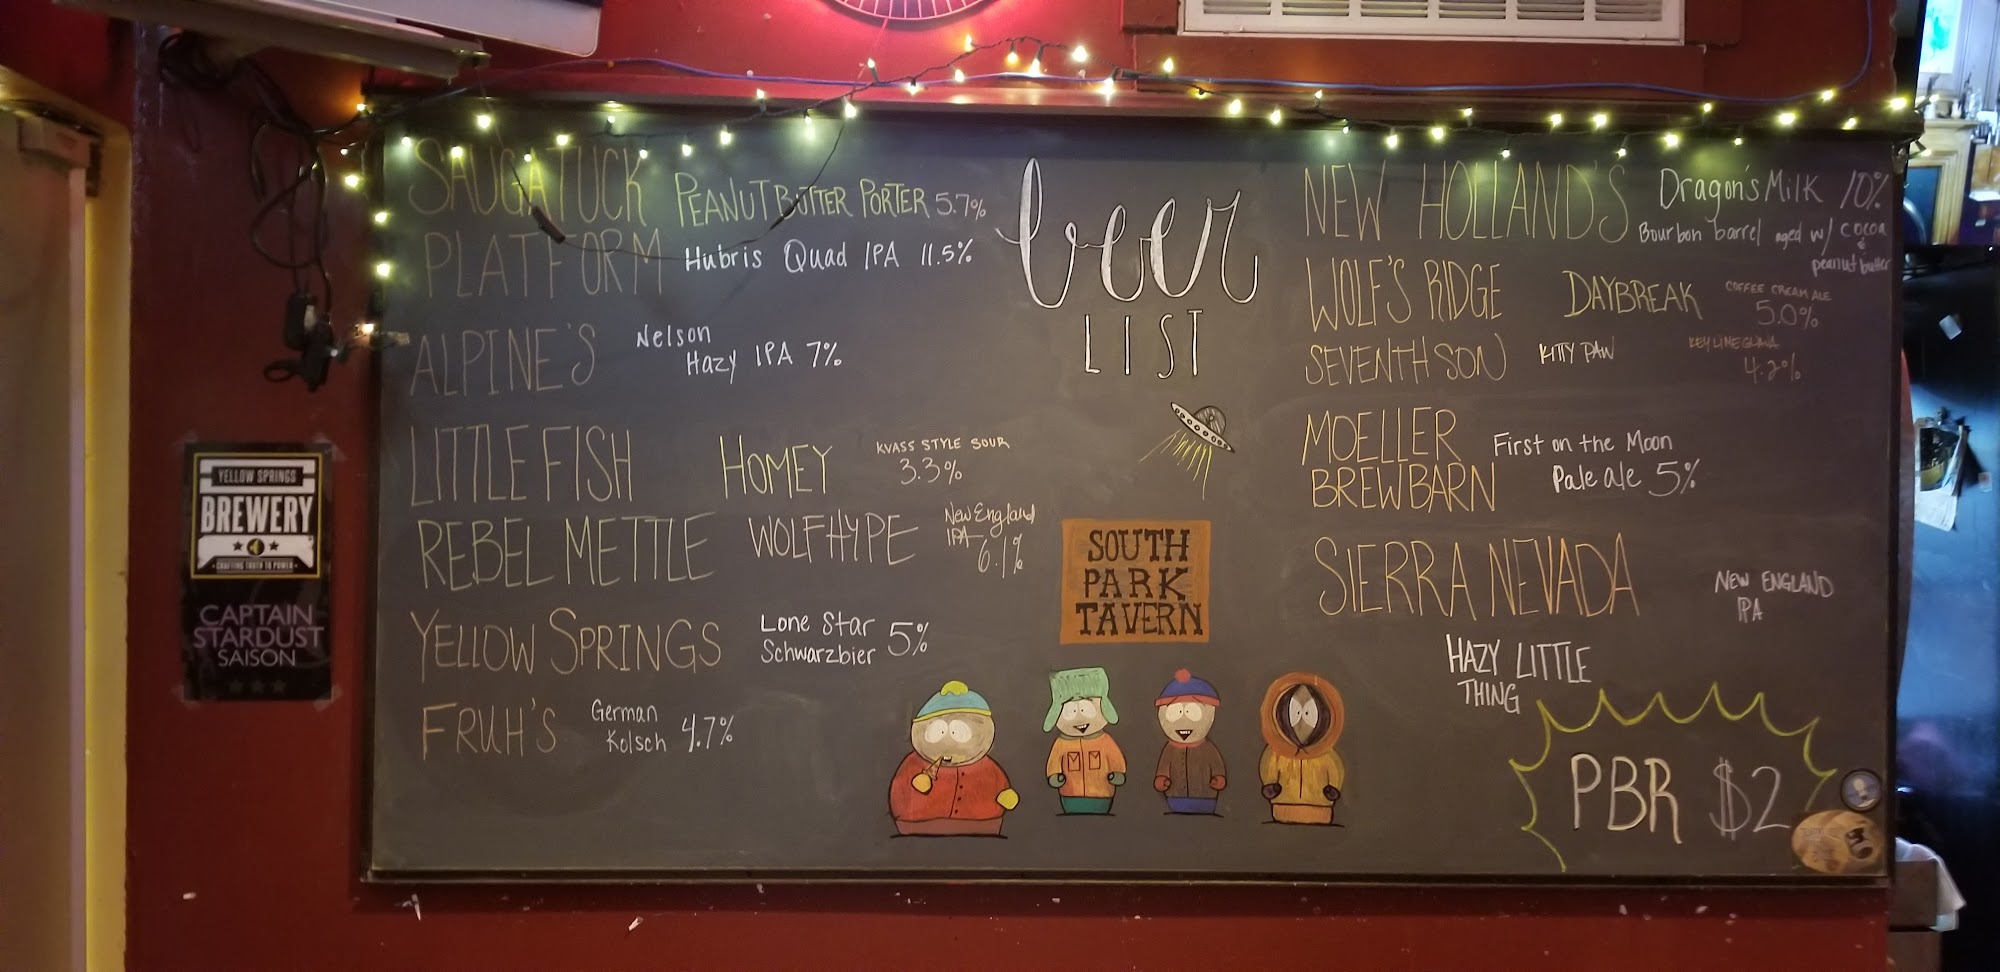 SAUGATUCK PEANUT BUTTER PORTER 5.7%
PLATFORM Hubris Quad IPA 11.5%
ALPINE'S Nelson
Hazy IPA 7%
LITTLE FISH HOMEY KVASS STYLE SOUR
3.3%
REBEL METTLE WOLFHYPE New England
IPA
6.1%
YELLOW SPRINGS Lone Star
Schwarzbier 5%
FRUH'S German
Kolsch 4.7%
beer
LIST
SOUTH
PARK
TAVERN
NEW HOLLAND'S Dragon's Milk 10%
Bourbon barrel aged w/ cocoa
&
peanut butter
WOLF'S RIDGE DAYBREAK COFFEE CREAM ALE
5.0%
SEVENTH SON KITTY PAW KEY LIME GUAVA
4.2%
MOELLER First on the Moon
BREWBARN Pale ale 5%
SIERRA NEVADA NEW ENGLAND
IPA
HAZY LITTLE
THING
PBR $2
YELLOW SPRINGS
BREWERY
CRAFTING TRUTH TO POWER
CAPTAIN
STARDUST
SAISON